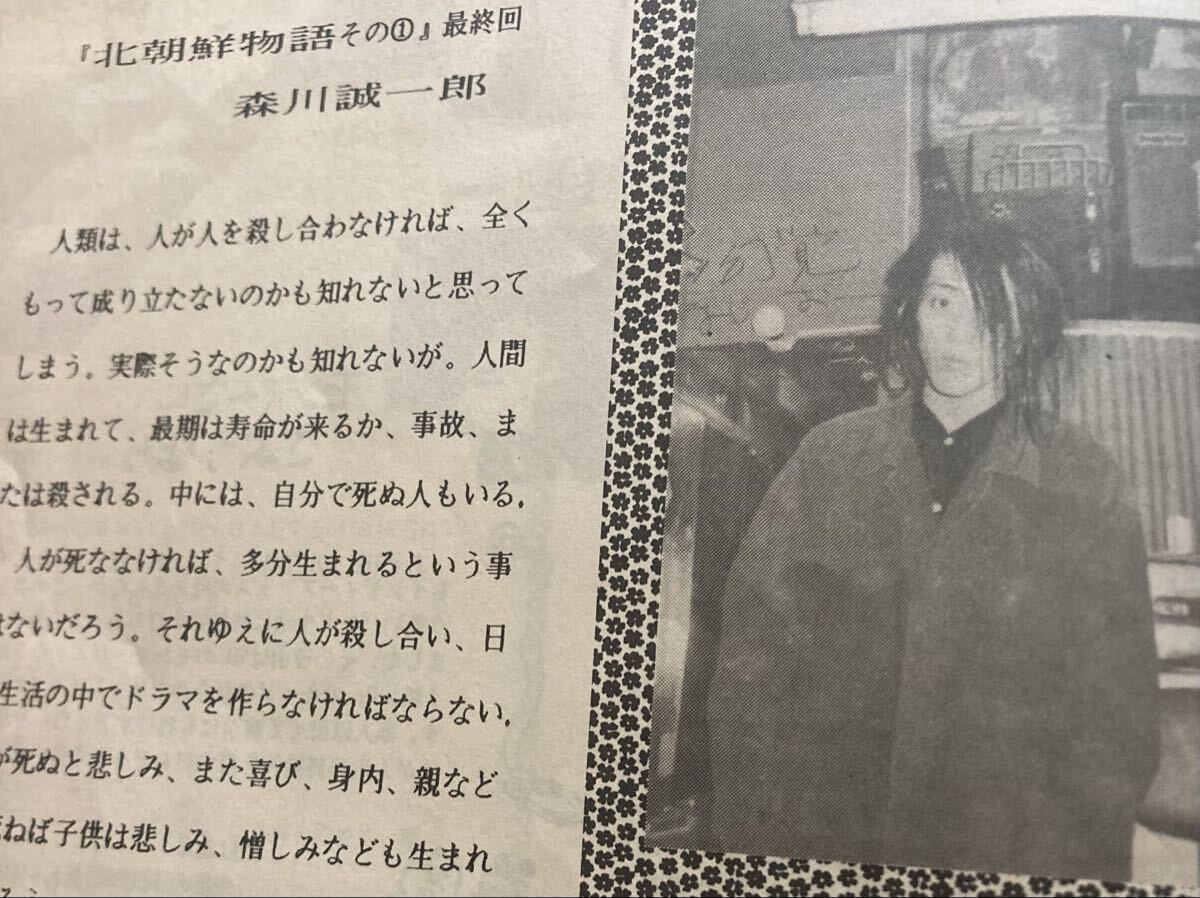 『北朝鮮物語その①』最終回
森川誠一郎
人類は、人が人を殺し合わなければ、全く
もって成り立たないのかも知れないと思って
しまう。実際そうなのかも知れないが。人間
は生まれて、最期は寿命が来るか、事故、ま
たは殺される。中には、自分で死ぬ人もいる。
人が死ななければ、多分生まれるという事
はないだろう。それゆえに人が殺し合い、日
生活の中でドラマを作らなければならない。
が死ぬと悲しみ、また喜び、身内、親など
ねば子供は悲しみ、憎しみなども生まれ